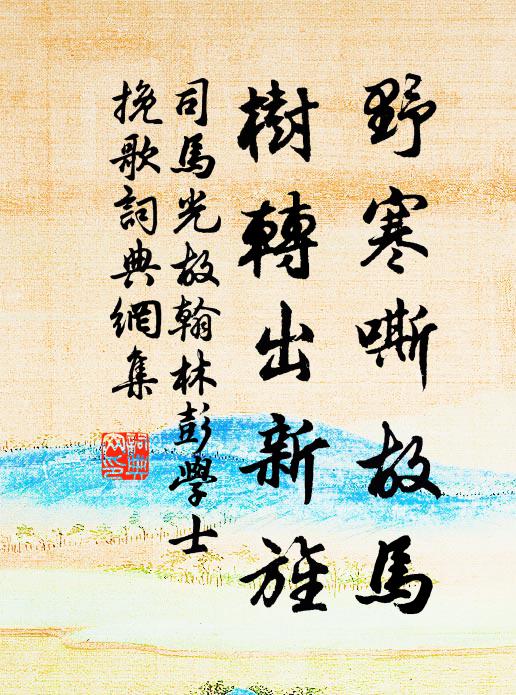 野寒嘶故馬
樹轉出新旌
司馬光故翰林彭學士
挽歌詞典網集